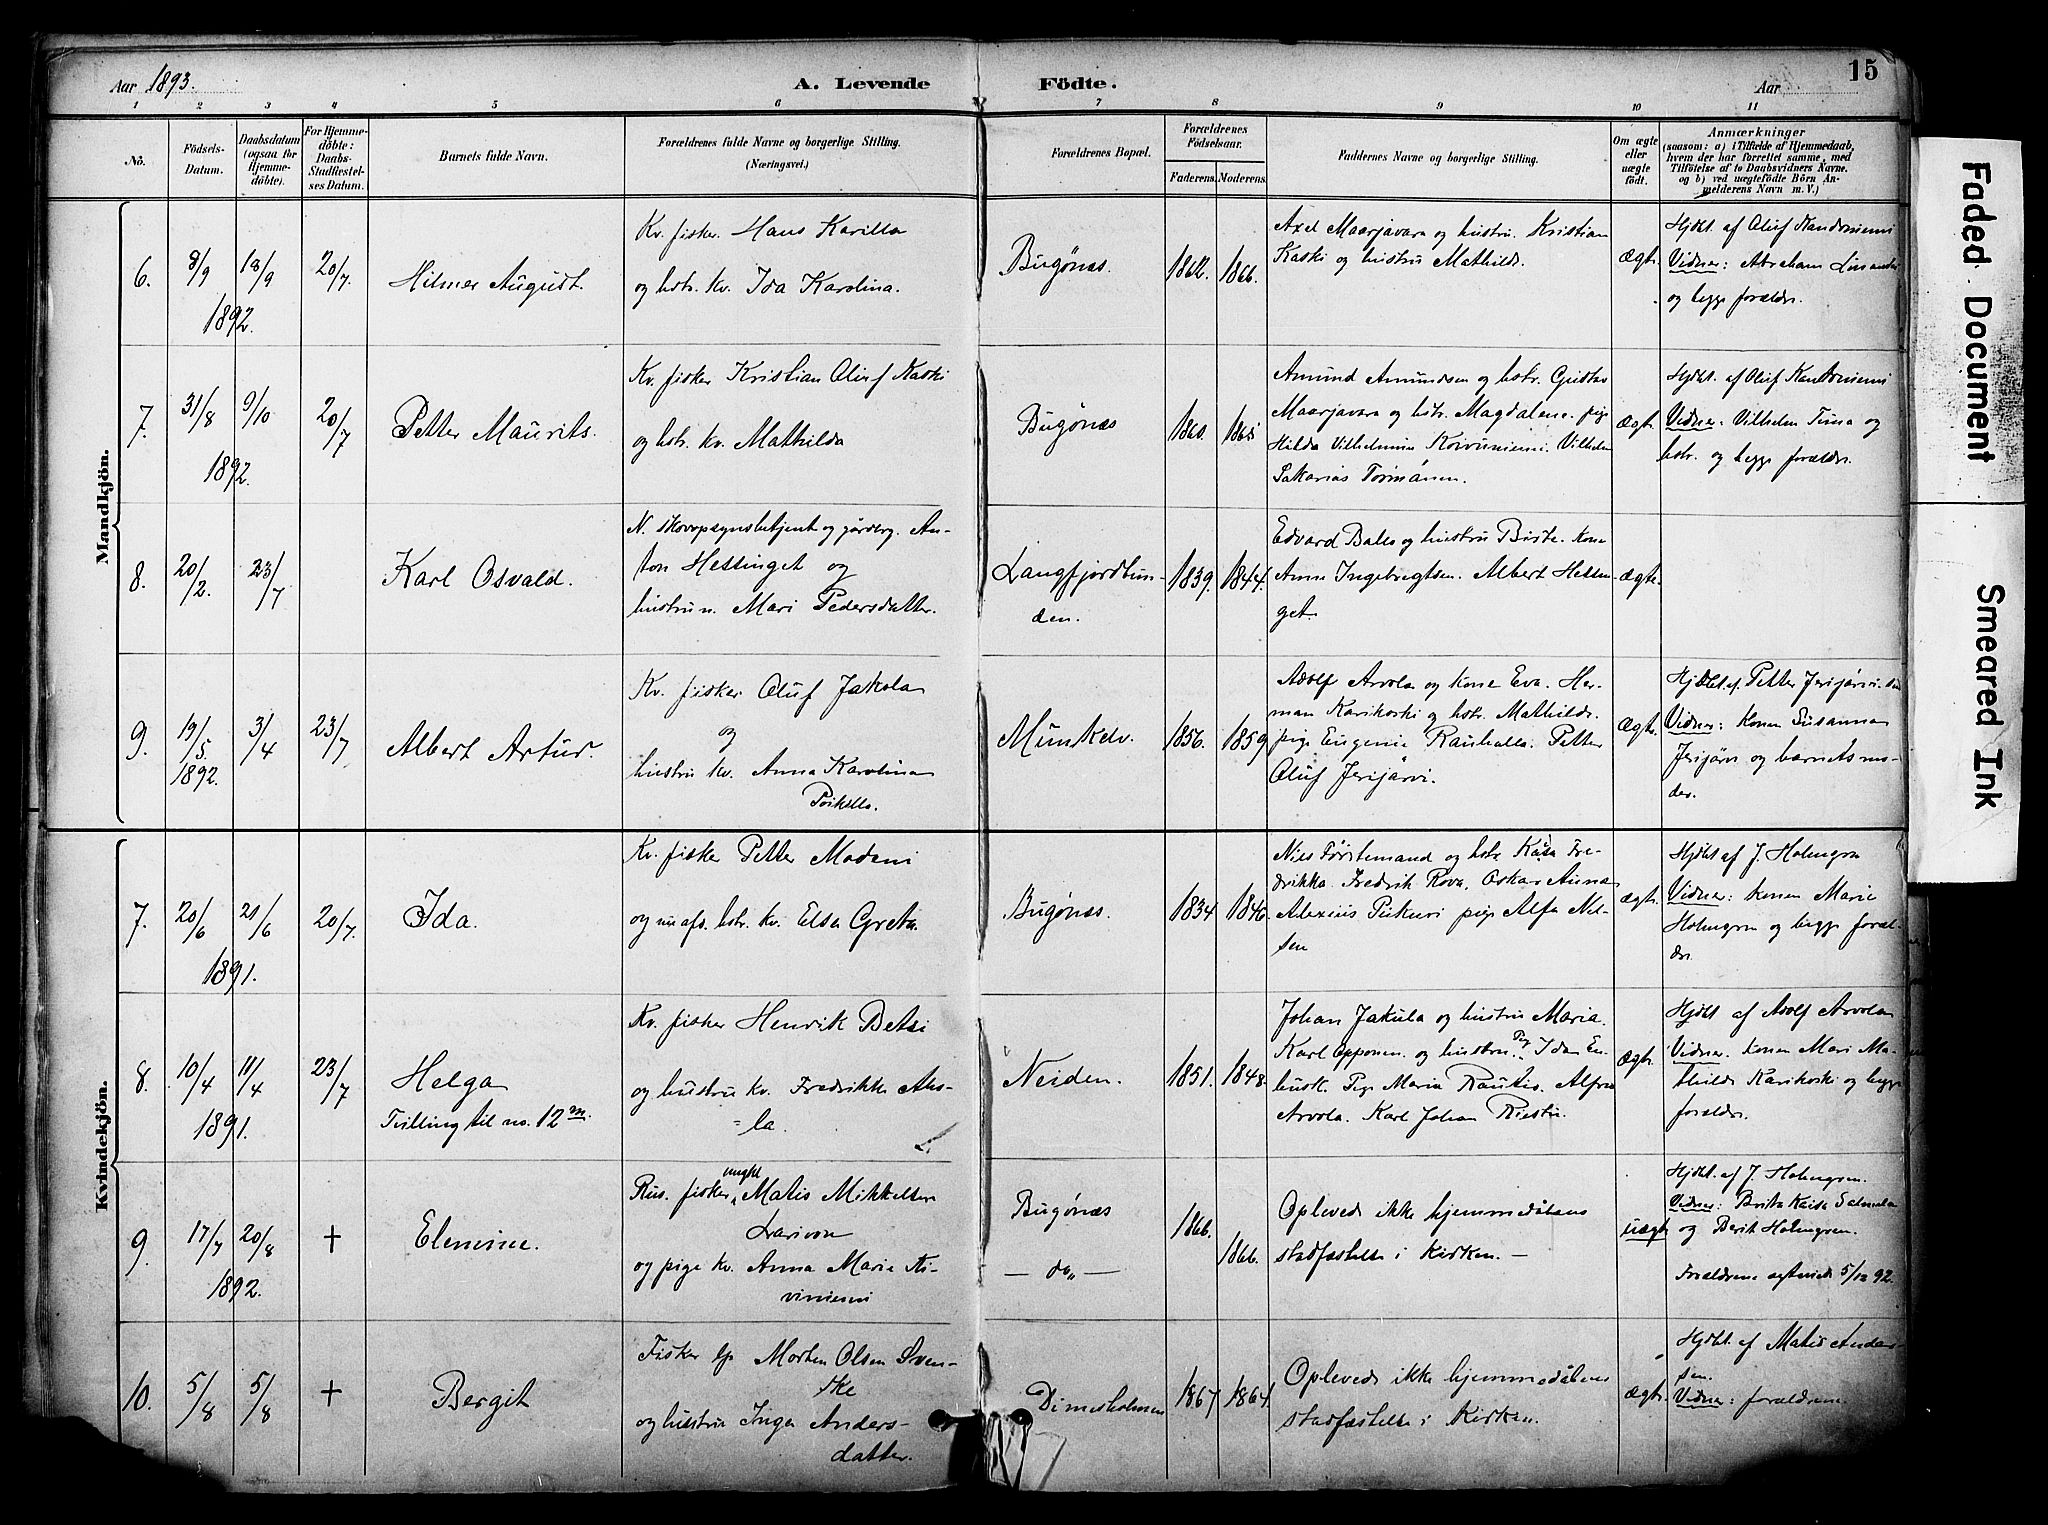 Aar 1893.
A. Levende Födte.
Aar
15
1 2 3 4 5 6 7 8 9 10 11
No.
Födsels-
Datum.
Daabsdatum
(ogsaa for
Hjemme-
döbte).
For Hjemme-
döbte:
Daabs-
Stadfæstel-
ses Datum.
Barnets fulde Navn.
Forældrenes fulde Navne og borgerlige Stilling.
(Næringsvei.)
Forældrenes Bopæl.
Forældrenes
Födselsaar.
Faderens. Moderens.
Faddernes Navne og borgerlige Stilling.
Om ægte
eller
uægte
födt.
Anmærkninger
(saasom: a) i Tilfælde af Hjemmedaab,
hvem der har forrettet samme, med
Tilföielse af to Daabsvidners Navne.
og b) ved uægtefödte Börn An-
melderens Navn m. V.)
Mandkjön.
6.
8/9
18/9
1892.
20/7.
Hilmer August.
Kv. fisker. Hans Karilla
og hstr. kv. Ida Karolina.
Bugönæs.
1862.
1866.
Axel Maarjavara og hustru. Kristian
Kaski og hustru Mathilde.
Ægt.
Hjdbt. af Oluf Kandoniemi
Vidner: Abraham
og begge forældr.
7.
31/8
9/10
1892.
20/7
Petter Maurits.
Kv. fisker Kristian Oluf Kaski
og hstr. kv. Mathilda
Bugönæs
1860.
1865
Amund Amundsen og hstr. Gustav
Maarjavara og hstr. Magdalene. pige
Hilda Vilhelmina Koivuniemi. Vilhelm
Sakarias Törmänen.
Ægt.
Hjdbt. af Oluf Kandoniemi
Vidner: Vilhelm Tima og
hstr. og begge forældr.
8.
20/2.
23/7
Karl Osvald.
N. skovopsynsbetjent og gårdbrg. An-
ton Hessinget og
hustru n. Mari Pedersdatter.
Langfjordbun-
den.
1839.
1844.
Edvard Bales og hustru Birte. Kone
Anne Ingebrigtsen. Albert Hessin-
get.
Ægte.
9.
19/5.
1892.
3/4
23/7
Albert Artur.
Kv. fisker Oluf Jakola
og
hustru kv. Anna Karolina
Poikella.
Munkelv.
1856.
1859
Adolf Arvola og kone Eva. Her-
man Karikoski og hstr. Mathilde.
pige Eugenie Rauhalla. Petter
Oluf Jerijärvi.
Ægt.
Hjdbt. af. Petter Jerijärvi.
Vidner: Konen Susanna
Jerijärvi og barnets mo-
der.
Kvindekjön.
7.
20/6
21/6
1891.
20/7.
Ida.
Kv. fisker Petter Modeni
og nu afd. hstr. kv. Elsa Greta.
Bugönæs.
1834
1846.
Nils Förstemand og hstr Kaisa Fre-
drikka. Fredrik Rova. Oskar Anna
Alexius Piikuri pige Alfa Nil-
sen
Ægt.
Hjdbt af J. Holmgren
Vidner: konen Marie
Holmgren og begge foræl-
dr.
8.
10/4
11/4
1891.
23/7
Helga
Tvilling til no. 12 m.
Kv. fisker Henrik Betsi
og hustru kv. Fredrikke Ahs-
=la.
Neiden.
1851.
1848.
Johan Jakula og hustru Maria.
Karl Opponen. og hustru. Pig. Ida En-
busk. Pige Maria Rautio. Alfred
Arvola. Karl Johan Riesto.
Ægt.
Hjdbt af Adolf Arvola
Vidner. konen Mari Ma-
thilde Karikoski og begge
forældr.
9.
17/7
20/8
1892.
+
Elenine.
Rus. fisker ungkl Matis Mikkelsen
Larivon
og pige kv. Anna Marie Ai-
viniemi
Bugönæs
— do „ —
1866.
1866.
Oplevede ikke hjemmedåbens
stadfæstelse i kirken. —
uægt
Hjdbt. af J. Holmgren.
Vidner: Brita Kaisa Salmela
og Berit Holmgren.
Forældrene ægteviede 5/12 92.
10.
5/8
5/8
+
Bergit
Fisker lp Morten Olsen Sven-
ske
og hustru Inga Anders-
datter.
Dimesholmen
1867
1864.
Oplevede ikke hjemmedåbens
stadfæstelse i kirken.
ægt.
Hjdbt. af Matis Ander-
sen.
Vidner: forældrene.
Faded Document
Smeared Ink